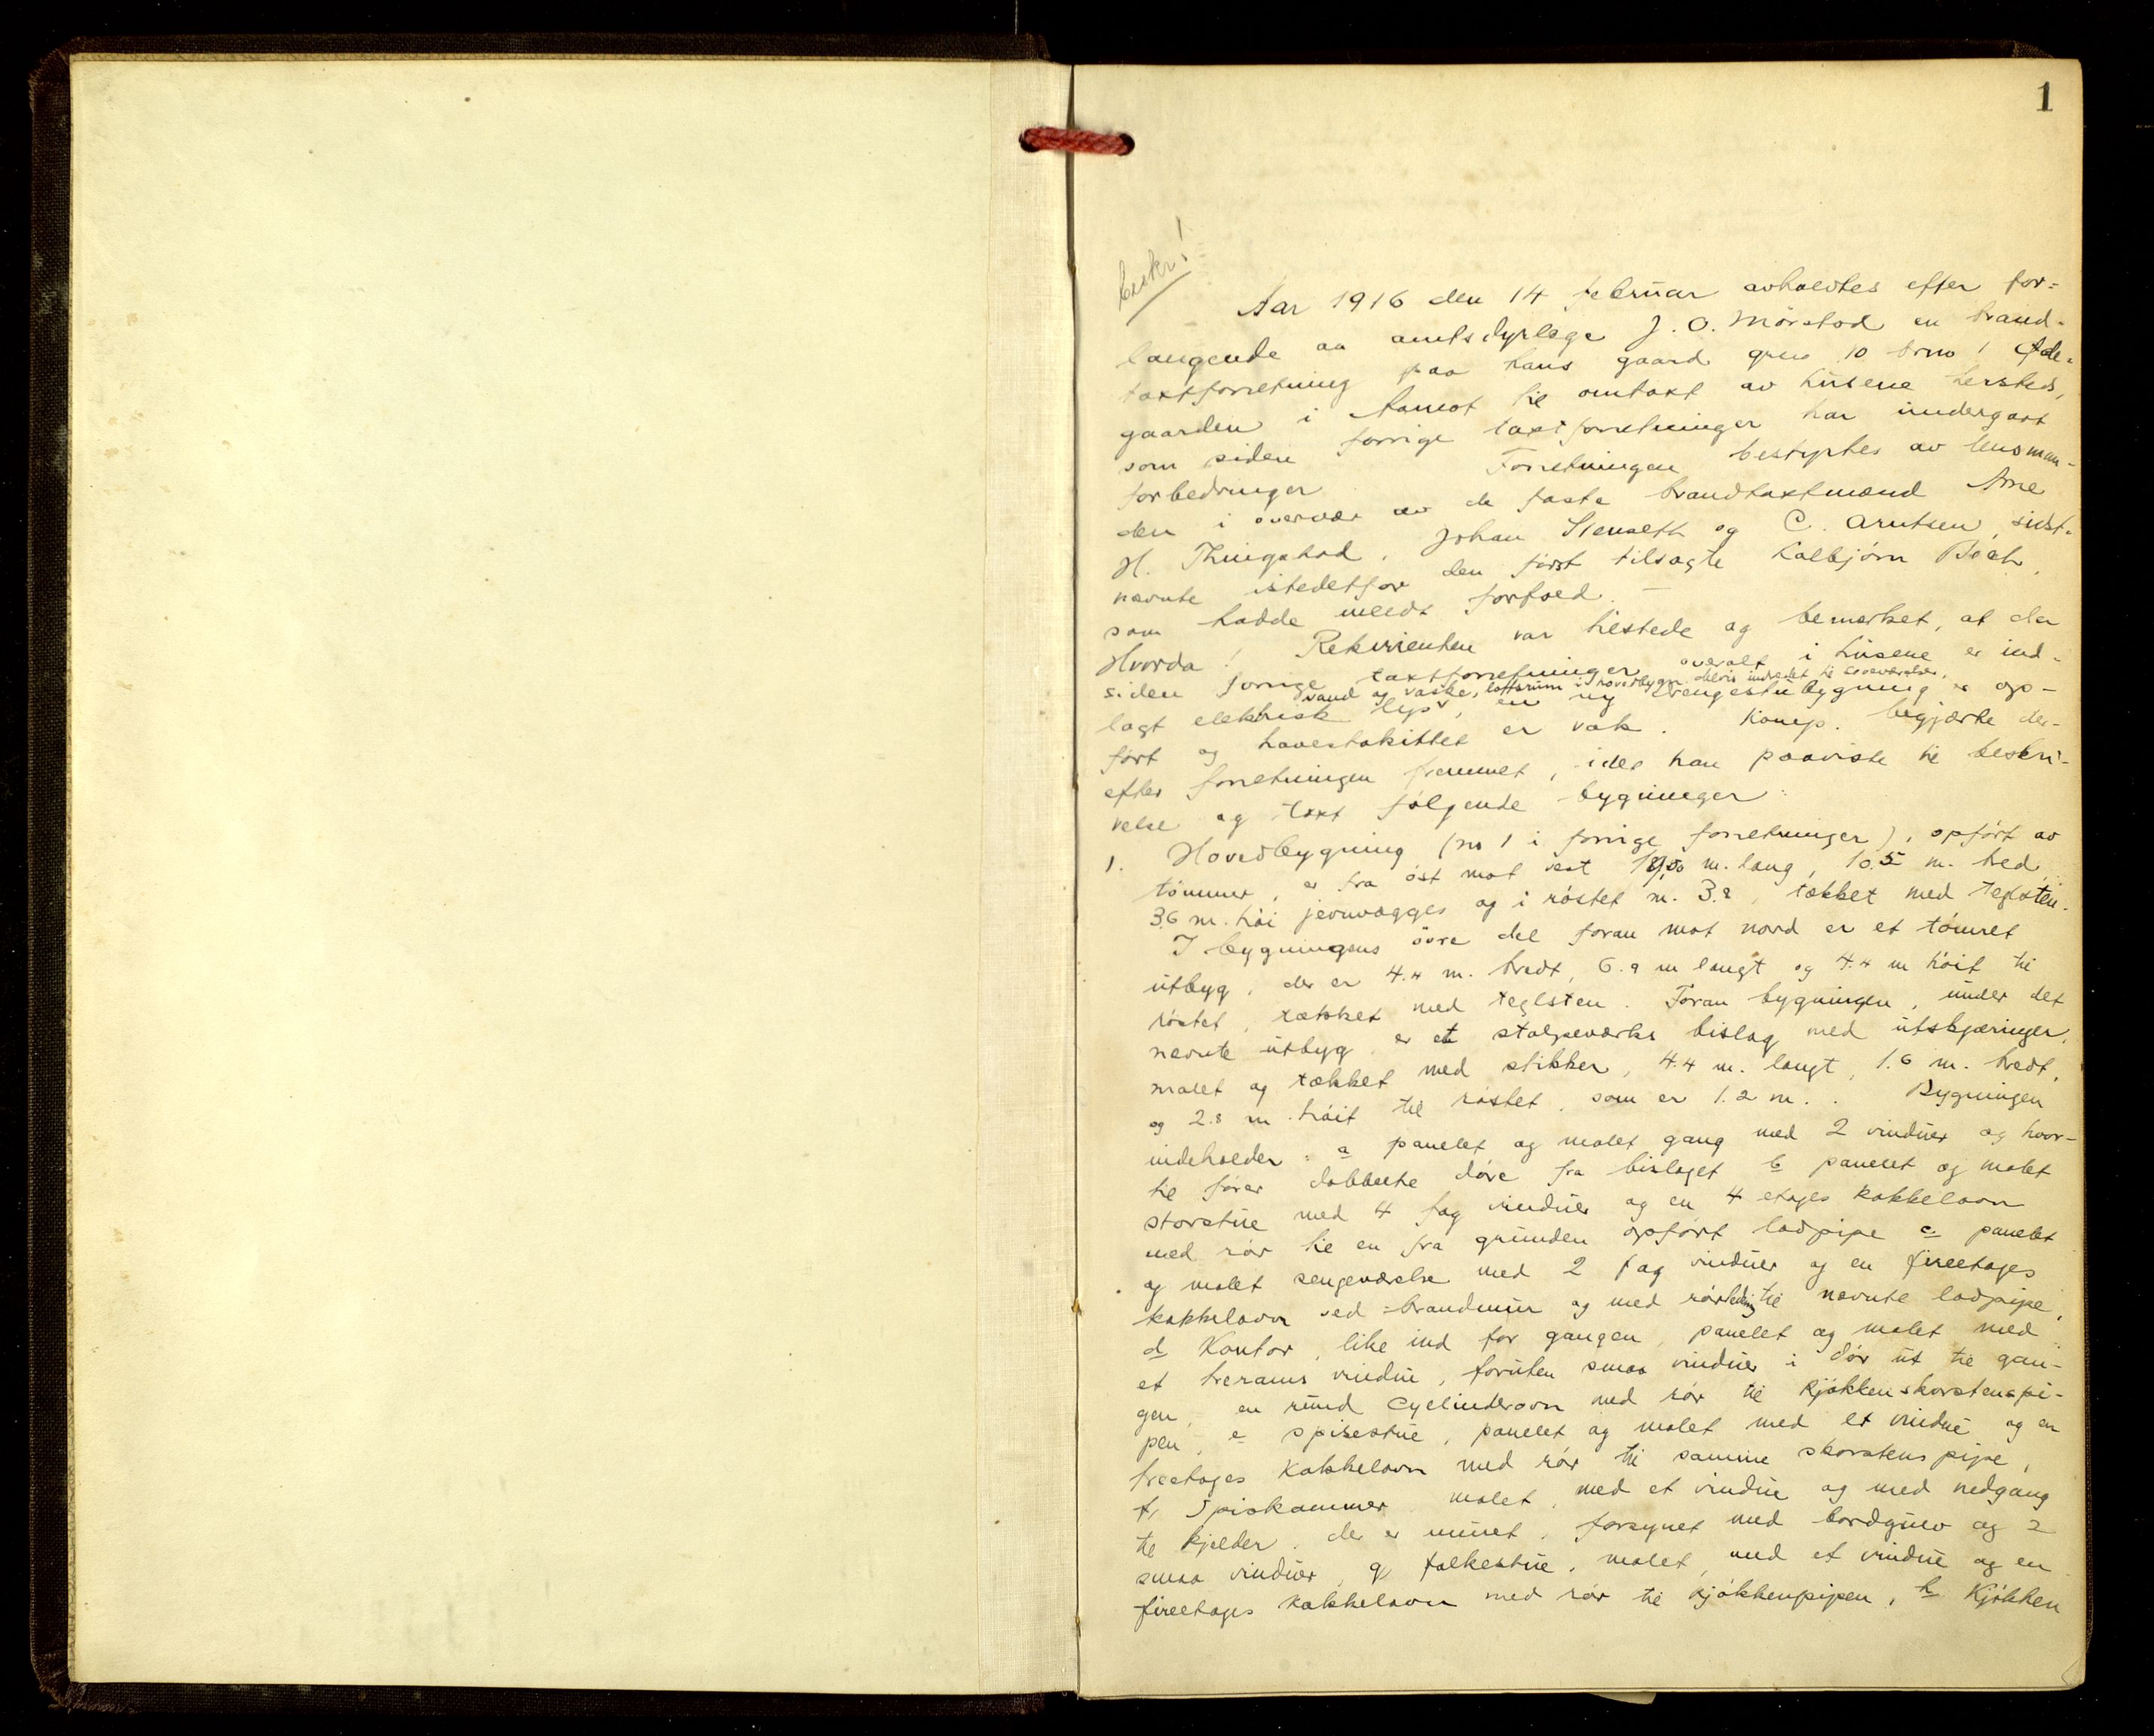 1
beskr!
Aar 1916 den 14 februar avholdtes efter for-
langende av amtsdyrlæge J. O. Mørstad en brand-
taxtforretning paa hans gaard gno 10 brno 1 Øde-
gaarden i Aamot til omtaxt av husene hersteds,
som siden forrige taxtforretninger har undergaat
forbedringer. Forretningen bestyrtes av lensman-
den i overvær av de faste brandtaxtmænd Arne
H. Thingstad, Johan Stenseth og C. Arntsen, sidst-
nævnte istedetfor den først tilsagte Kolbjørn Bech,
som hadde meldt forfald. —
Hvorda! Rekvirenten var tilstede og bemerket, at der
siden forrige taxtforretninger overalt i husene er ind-
vand og vaske, loftsrum i hovedbygn. delvis indredet til soveværelse,
lagt elektrisk lys, en ny drengestubygning er op-
ført og havestakittet er væk. Komp. begjærte der-
efter forretningen fremmet, idet han paaviste til beskri-
velse og taxt følgende bygninger:
1. Hovedbygning (no 1 i forrige forretninger), opført av
tømmer, er fra øst mot vest m. lang, 10.5 m. bred,
3.6 m. høi jevnvægges og i røstet m. 3.2, tækket med teglsten.
I bygningens øvre del foran mot nord er et tømret
utbyg, der er 4.4 m. bredt, 6.9 m langt og 4.4 m høit til
røstet, tækket med teglsten. Foran bygningen, under det
nævnte utbyg, er et stolpeværks bislag med utskjæringer,
malet og tækket med stikker, 4.4 m. langt, 1.6 m. bredt,
og 2.8 m. høit til røstet, som er 1.2 m.. Bygningen
indeholder: a panelet og malet gang med 2 vinduer og hvor-
til fører dobbelte døre fra bislaget b panelet og malet
storstue med 4 fag vinduer og en 4 etages kakkelovn
med rør til en fra grunden opført ladpipe c panelet
og malet sengeværelse med 2 fag vinduer og en fireetages
kakkelovn ved brandmur og med rørledning til nævnte ladpipe,
d Kontor, like ind for gangen, panelet og malet med
et trerams vindu, foruten smaa vinduer i dør ut til gan-
gen, en rund Cylinderovn med rør til kjøkkenskorstenspi-
pen, e spisestue, panelet og malet med et vindue og en
treetages Kakkelovn med rør til samme skorstenspipe,
f, Spiskammer, malet, med et vindue og med nedgang
til kjelder, der er muret, forsynet med bordgulv og 2
smaa vinduer, g) folkestue, malet, med et vindue og en
fireetages kakkelovn med rør til kjøkkenpipen, h Kjøkken